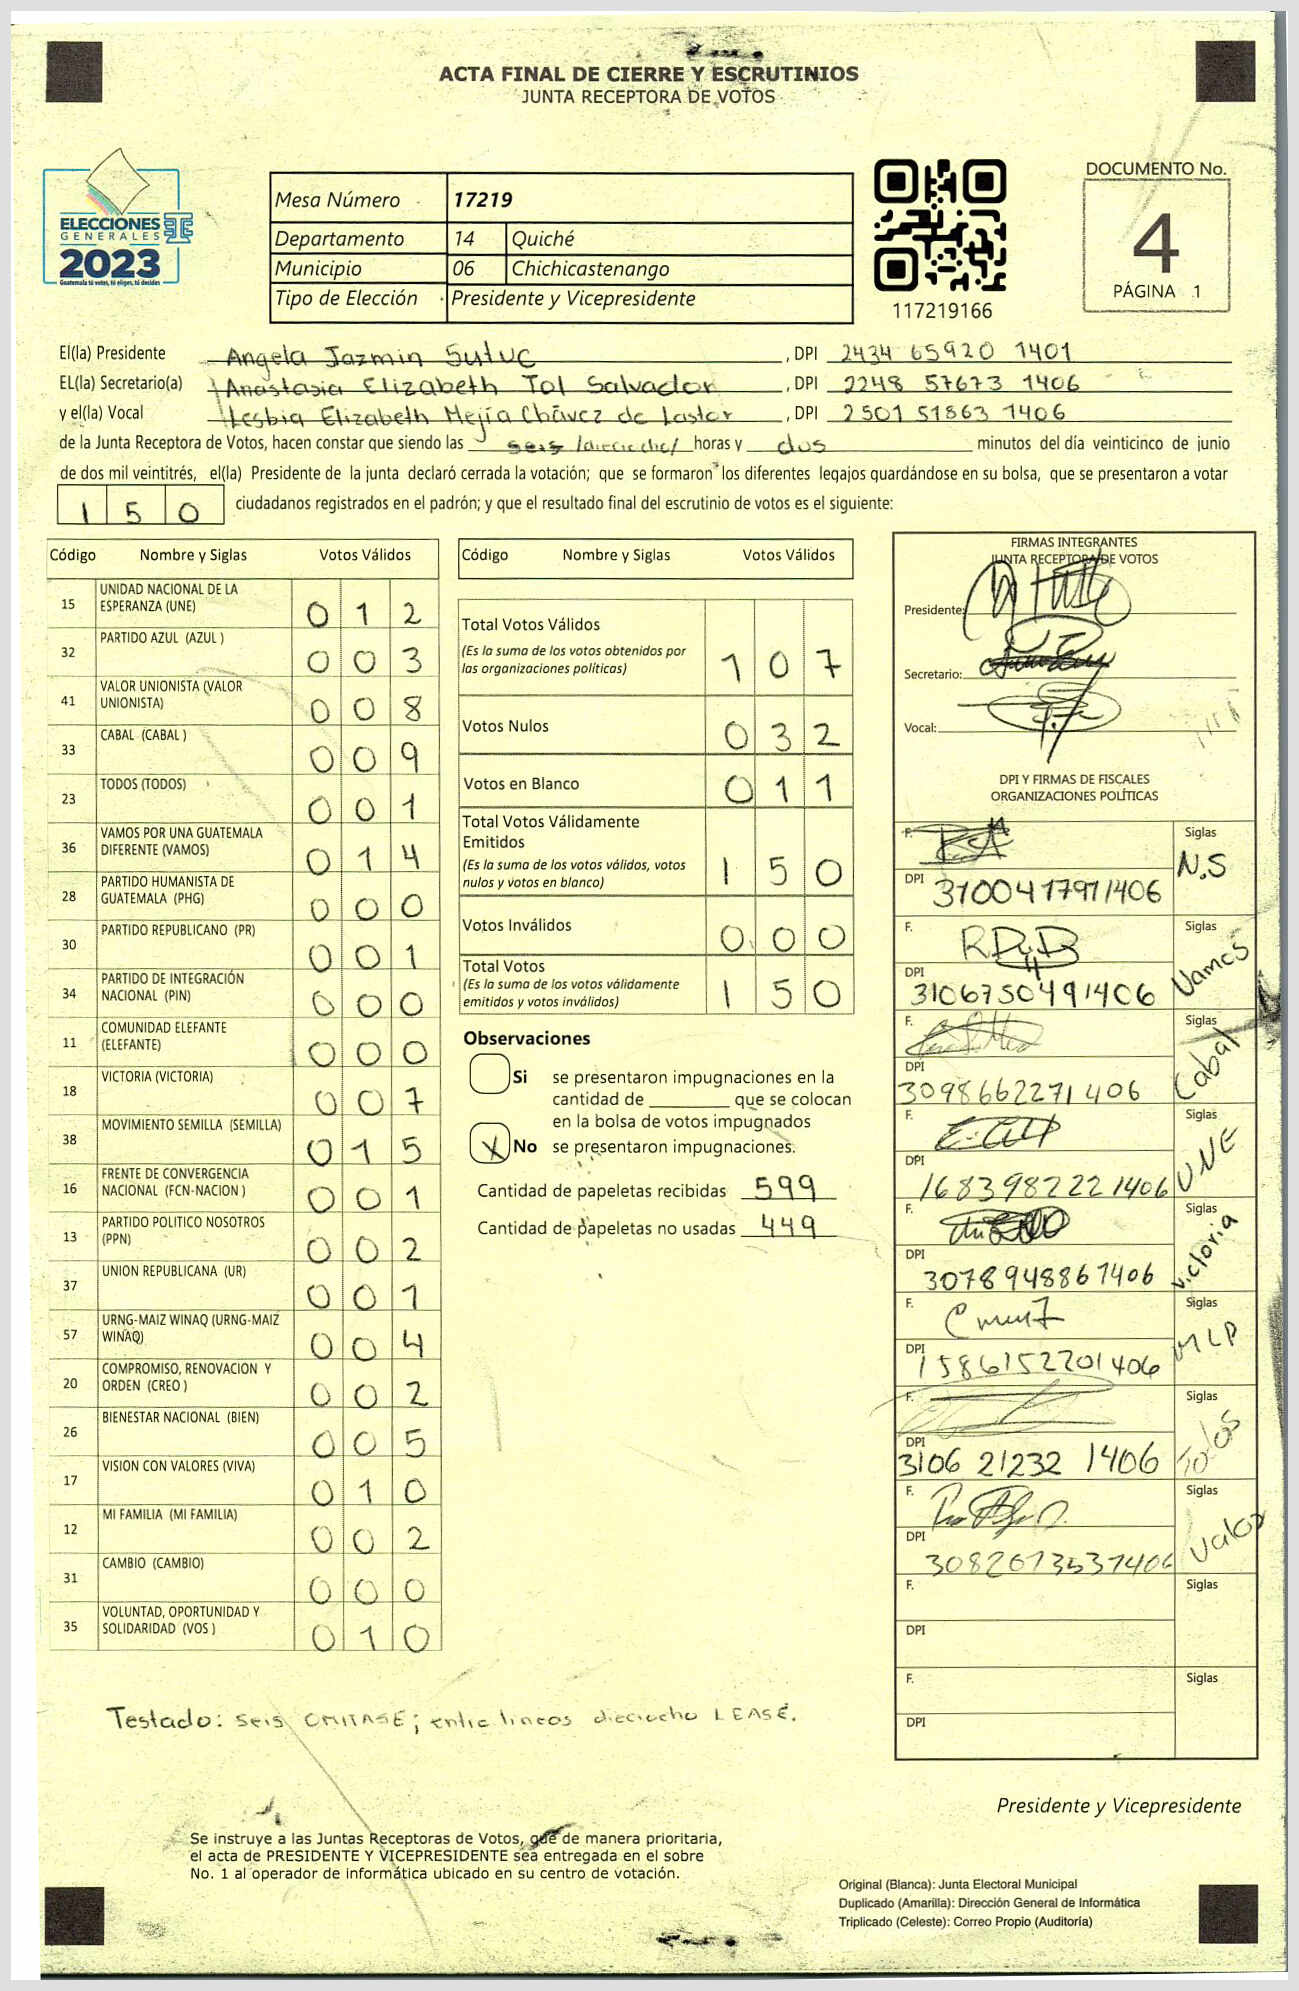 ACTA FINAL DE CIERRE Y ESCRUTINIOS
JUNTA RECEPTORA DE VOTOS
ELECCIONES
GENERALES
2023
Guatemala tú votas, tú eliges, tú decides
Mesa Número 17219
Departamento 14 Quiché
Municipio 06 Chichicastenango
Tipo de Elección Presidente y Vicepresidente
117219166
DOCUMENTO No.
4
PÁGINA 1
El(la) Presidente Angela Jazmin Sutuc, DPI 2434 65920 1401
EL(la) Secretario(a) Anastasia Elizabeth Tol Salvador, DPI 2248 57673 1406
y el(la) Vocal Lesbia Elizabeth Mejía Chávez de Lastor, DPI 2501 51863 1406
de la Junta Receptora de Votos, hacen constar que siendo las seis /dieciocho/ horas y dos minutos del día veinticinco de junio
de dos mil veintitrés, el(la) Presidente de la junta declaró cerrada la votación; que se formaron los diferentes legajos quardándose en su bolsa, que se presentaron a votar
150 ciudadanos registrados en el padrón; y que el resultado final del escrutinio de votos es el siguiente:
Código Nombre y Siglas Votos Válidos
15 UNIDAD NACIONAL DE LA ESPERANZA (UNE) 012
32 PARTIDO AZUL (AZUL ) 003
41 VALOR UNIONISTA (VALOR UNIONISTA) 008
33 CABAL (CABAL ) 009
23 TODOS (TODOS) 001
36 VAMOS POR UNA GUATEMALA DIFERENTE (VAMOS) 014
28 PARTIDO HUMANISTA DE GUATEMALA (PHG) 000
30 PARTIDO REPUBLICANO (PR) 001
34 PARTIDO DE INTEGRACIÓN NACIONAL (PIN) 000
11 COMUNIDAD ELEFANTE (ELEFANTE) 000
18 VICTORIA (VICTORIA) 007
38 MOVIMIENTO SEMILLA (SEMILLA) 015
16 FRENTE DE CONVERGENCIA NACIONAL (FCN-NACION ) 001
13 PARTIDO POLITICO NOSOTROS (PPN) 002
37 UNION REPUBLICANA (UR) 001
57 URNG-MAIZ WINAQ (URNG-MAIZ WINAQ) 004
20 COMPROMISO, RENOVACION Y ORDEN (CREO ) 002
26 BIENESTAR NACIONAL (BIEN) 005
17 VISION CON VALORES (VIVA) 010
12 MI FAMILIA (MI FAMILIA) 002
31 CAMBIO (CAMBIO) 000
35 VOLUNTAD, OPORTUNIDAD Y SOLIDARIDAD (VOS ) 010
Código Nombre y Siglas Votos Válidos
Total Votos Válidos 107
(Es la suma de los votos obtenidos por
las organizaciones políticas)
Votos Nulos 032
Votos en Blanco 011
Total Votos Válidamente
Emitidos 150
(Es la suma de los votos válidos, votos
nulos y votos en blanco)
Votos Inválidos 000
Total Votos 150
(Es la suma de los votos válidamente
emitidos y votos inválidos)
Observaciones
Si se presentaron impugnaciones en la
cantidad de ________ que se colocan
en la bolsa de votos impugnados
X No se presentaron impugnaciones.
Cantidad de papeletas recibidas 599
Cantidad de papeletas no usadas 449
FIRMAS INTEGRANTES
JUNTA RECEPTORA DE VOTOS
Presidente:
Secretario:
Vocal:
DPI Y FIRMAS DE FISCALES
ORGANIZACIONES POLÍTICAS
F. Siglas N.S
DPI 3100417971406
F. Siglas Vamos
DPI 3106750491406
F. Siglas Cabal
DPI 3098662271406
F. Siglas UNE
DPI 1683982221406
F. Siglas Victoria
DPI 3078948861406
F. Siglas MLP
DPI 1586152201406
F. Siglas Todos
DPI 3106 21232 1406
F. Siglas Valor
DPI 3082073531406
F. Siglas
DPI
F. Siglas
DPI
Testado: seis OMITASE; entre lineas dieciocho LEASE.
Presidente y Vicepresidente
Se instruye a las Juntas Receptoras de Votos, que de manera prioritaria,
el acta de PRESIDENTE Y VICEPRESIDENTE sea entregada en el sobre
No. 1 al operador de informática ubicado en su centro de votación.
Original (Blanca): Junta Electoral Municipal
Duplicado (Amarilla): Dirección General de Informática
Triplicado (Celeste): Correo Propio (Auditoría)